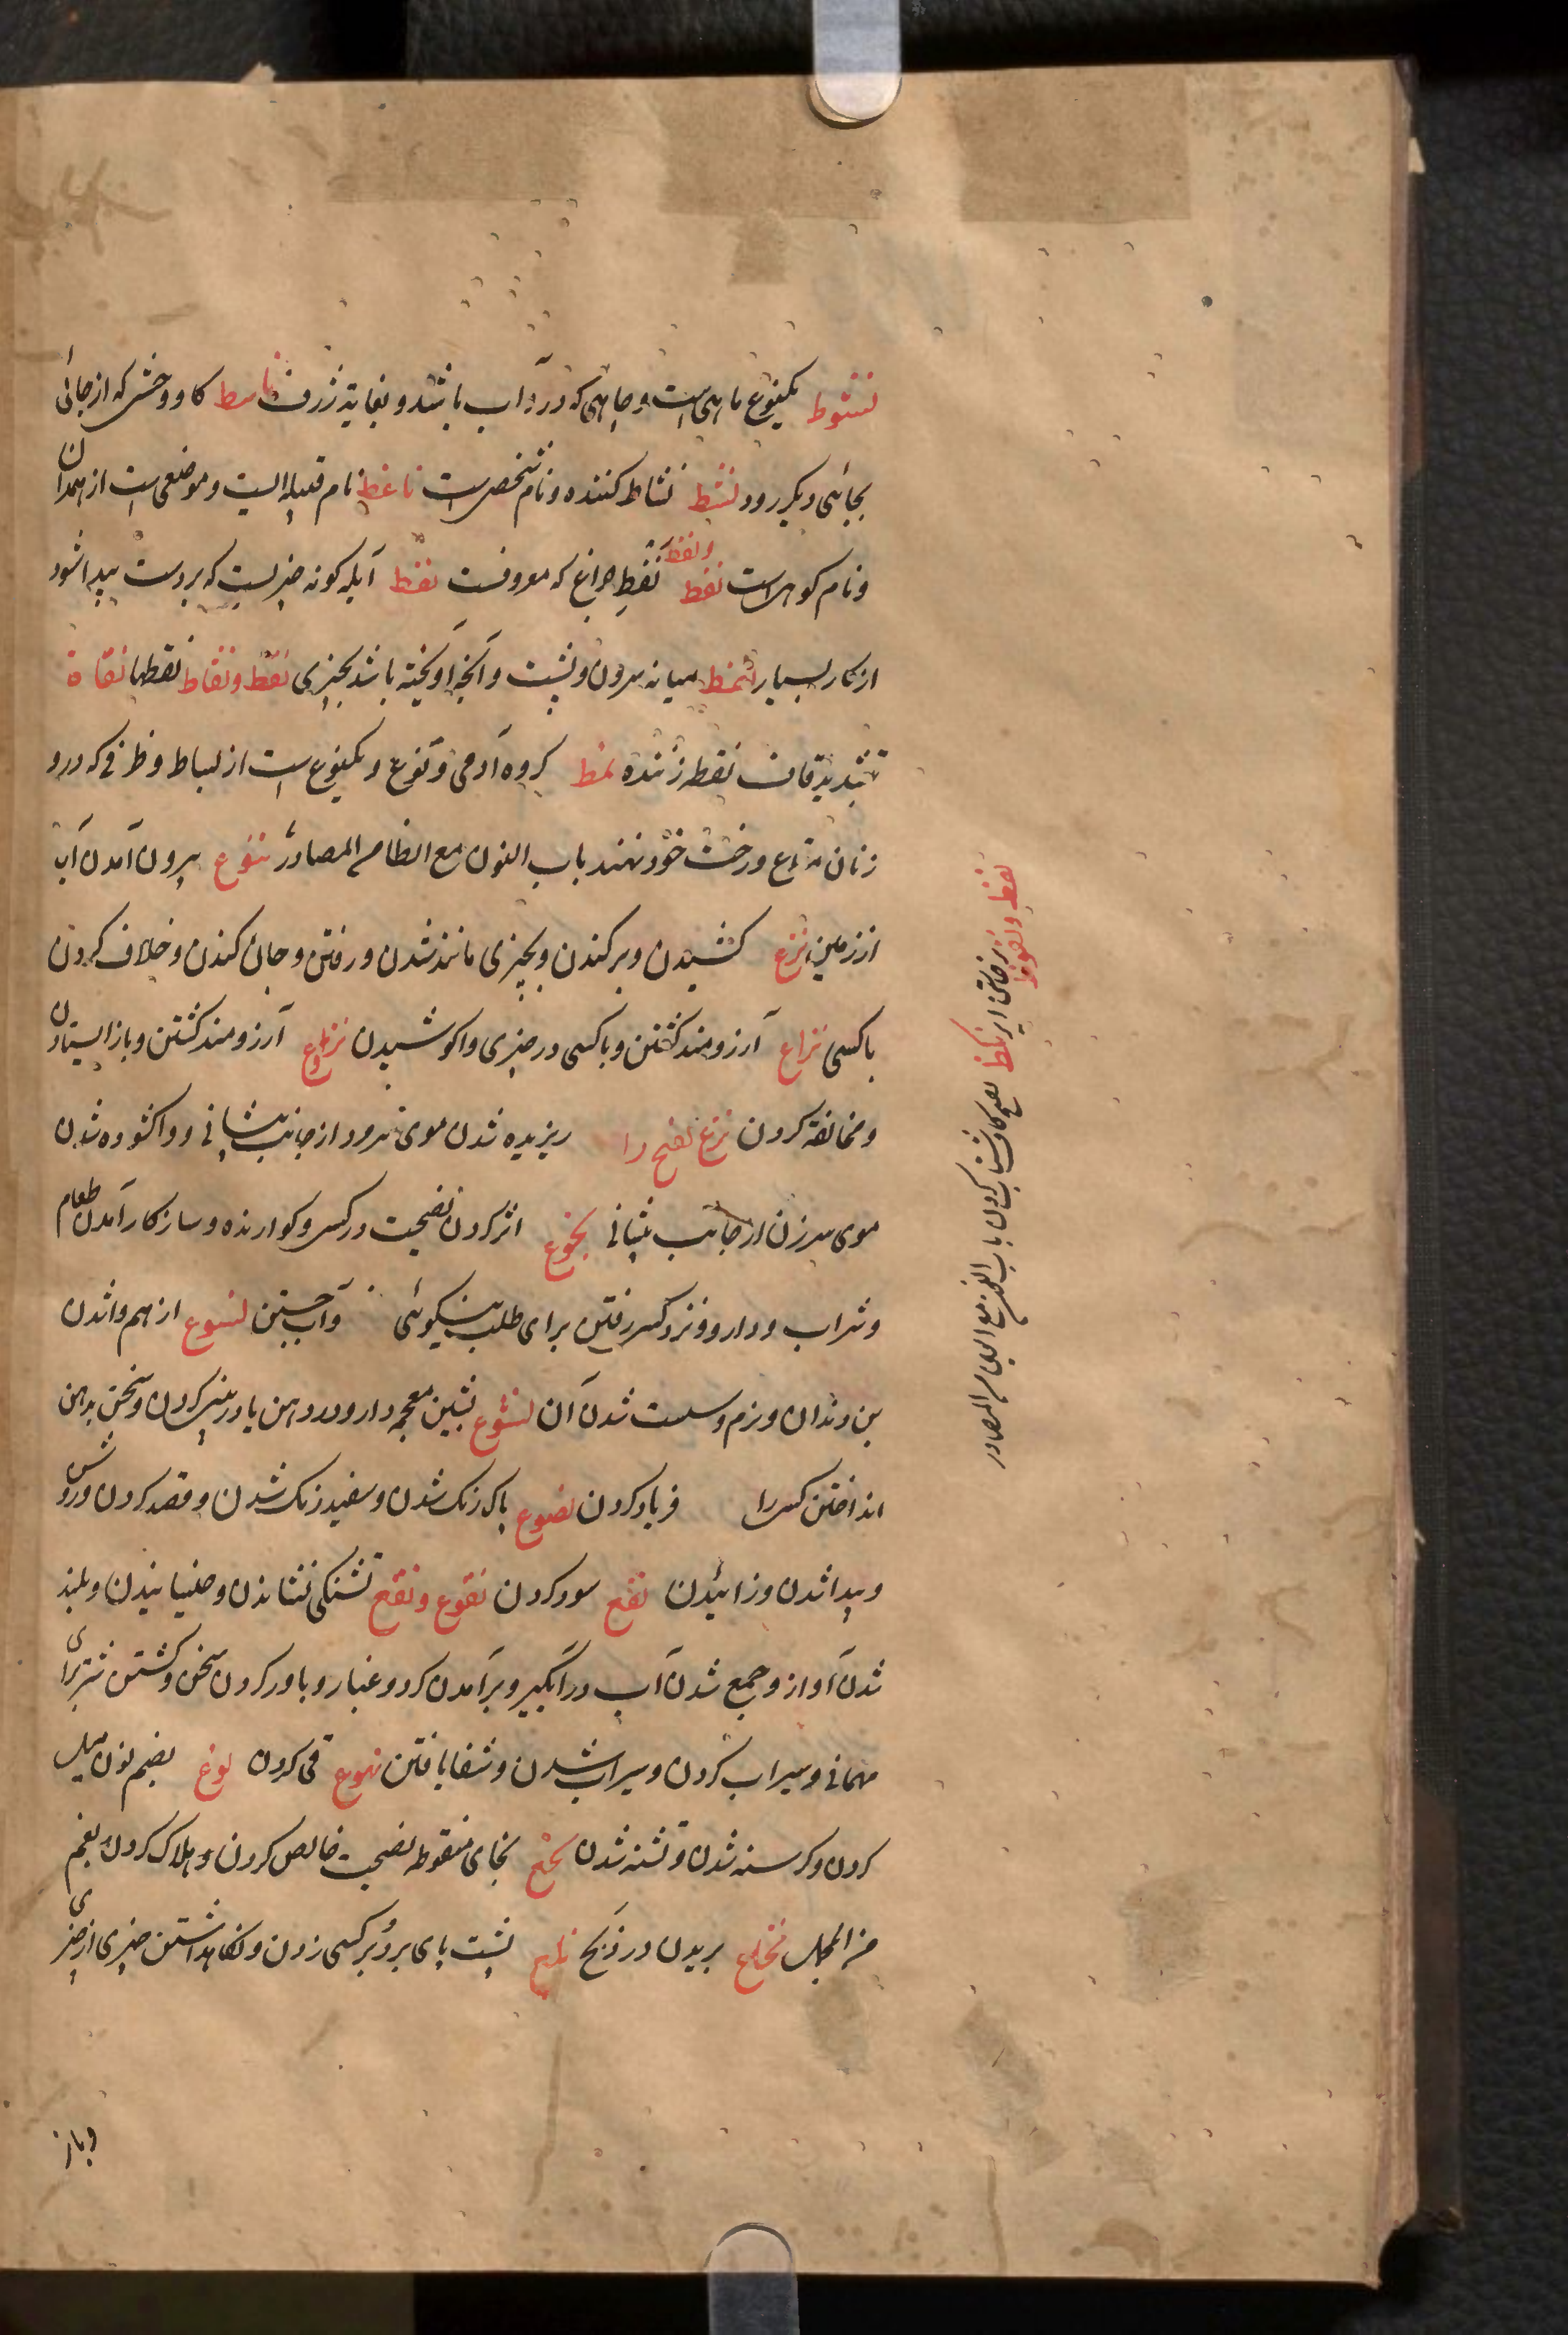 نشوط یکنوع ماهی است و چاهی که در آب باشد و بغایة ژرف ناشط کاو وحشی که از جائی
بجائی دیگر رود نشط نشاط کننده و نام شخصی است ناعط نام قبیله ایست و موضعی است از همدان
و نام کوهی است نفط و نفط نفط چراغ که معروفست نفط آبله کونه چیزیست که بر دست پیدا شود
از کار بسیار میانه سرون و پشت و آنچه آویخته باشد بچیزی نقط و نقاط نقطها نقاط
بتشدید قاف نقطه زننده نمط کروه آدمی و نوع و یکنوع است از بساط و ظرفی که درو
زنان متاع و رخت خود نهند باب النون مع الظا من المصادر نبوع بیرون آمدن آب
از زمین نزع کشیدن و برکندن و بچیزی مانند شدن و رفتن و جان کندن و خلاف کردن
با کسی نزاع آرزومند کشتن و با کسی در چیزی واکوشیدن نزوع آرزومند کشتن و باز ایستادن
و مخالفة کردن نزع بفتح را ریزیده شدن موی سرود از جانب پیشانی و واکشوده شدن
موی سر زن از جانب پیشانی نجوع اثر کردن نصیحت در کسی و کوارنده و سازکار آمدن طعام
و شراب و دارو و نزد کسی رفتن برای طلب نیکوئی و آب جستن نسوع از هم واشدن
بن دندان و نرم و سست شدن آن نشوع بشین معجمه دارو در دهن یا در بینی کردن و سخن بدهن
انداختن کسی را فریاد کردن نصوع پاک رنک شدن و سفید رنک شدن و قصد کردن و روشن
و پیدا شدن و زائیدن نفع سود کردن نقوع و نقع تشنکی نشاندن و خیسانیدن و بلند
شدن آواز و جمع شدن آب در آبگیر و برآمدن کرد و غبار و باور کردن سخن و کشتن شتر برای
مهمانی و سیراب کردن و سیراب شدن و شفا یافتن نهوع قی کردن نوع بضم نون میل
کردن و کرسنه شدن و تشنه شدن نخع بخای منقوطه نصیحت خالص کردن و هلاک کردن بغم
من المجمل نخع بریدن در ذبح پشت پای برو بر کسی زدن و نکاهداشتن چیزی از چیزی
و باز
نعظ و نعوظ برخاستن ایر نکظ بفتح کاف شتاب کردن باب النون مع العین من المصادر